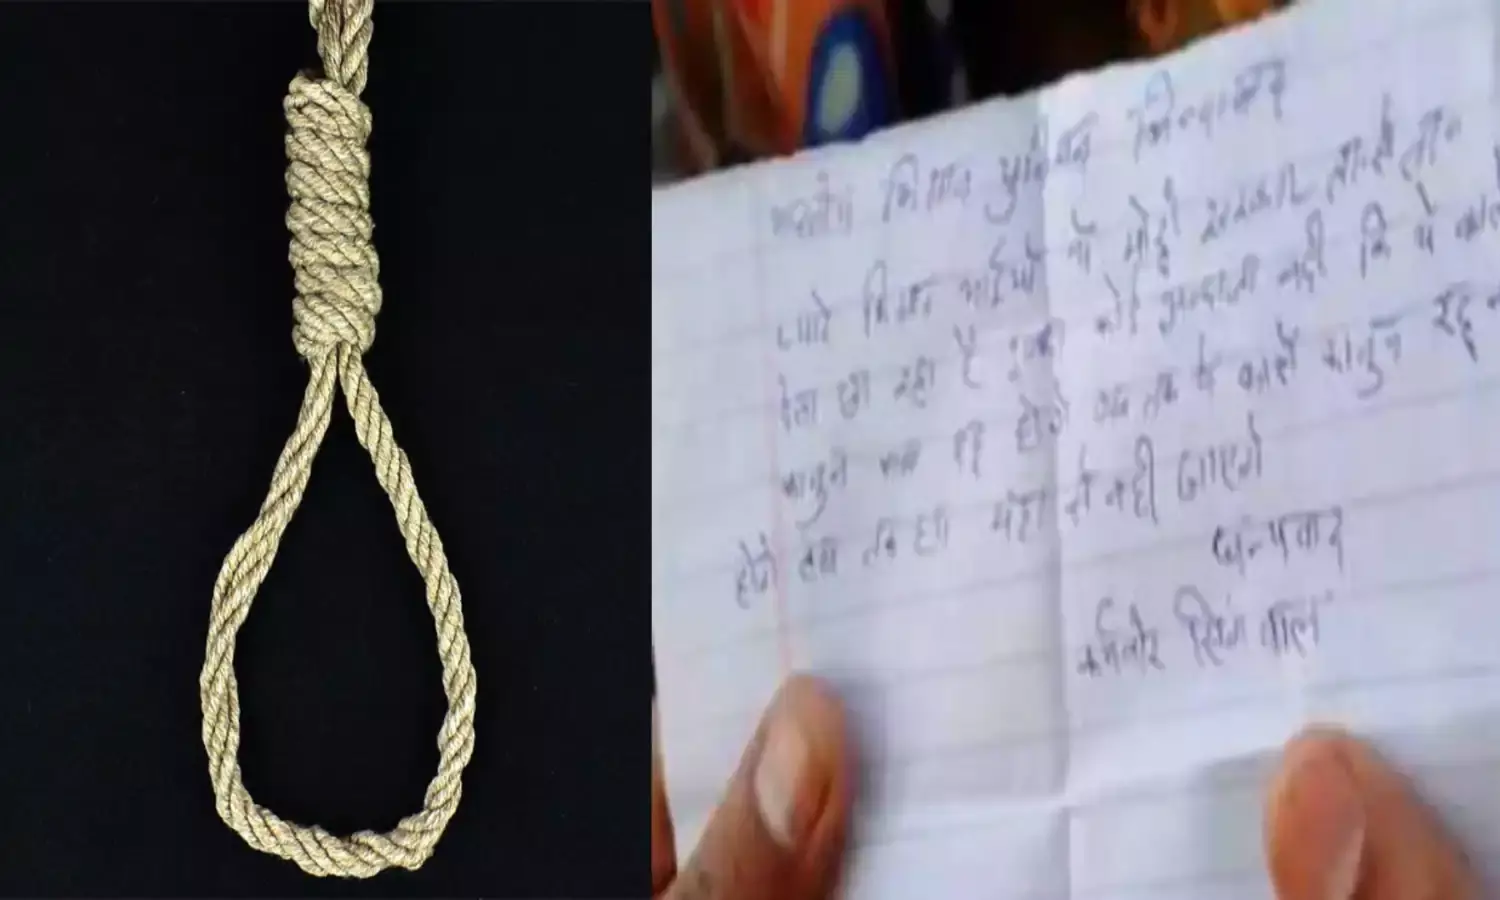 भारतीय किसान युनियन जिन्दाबाद
प्यारे किसान भाईयो ये मोदी सरकार तारीख पे तारीख
देता जा रहा है इसका कोई अन्दाजा नही कि ये काले
कानून कब रद्द होंगे जब तक ये काले कानून रद्द नही
होंगे तब तक हम यहा से नही जाएगे
धन्यवाद
कर्मवीर सिंगवाल